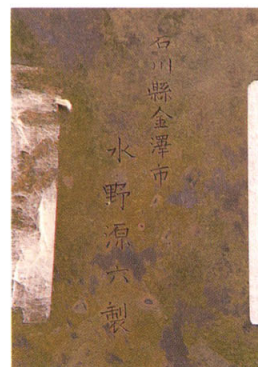 石川縣金澤市
水野源六製